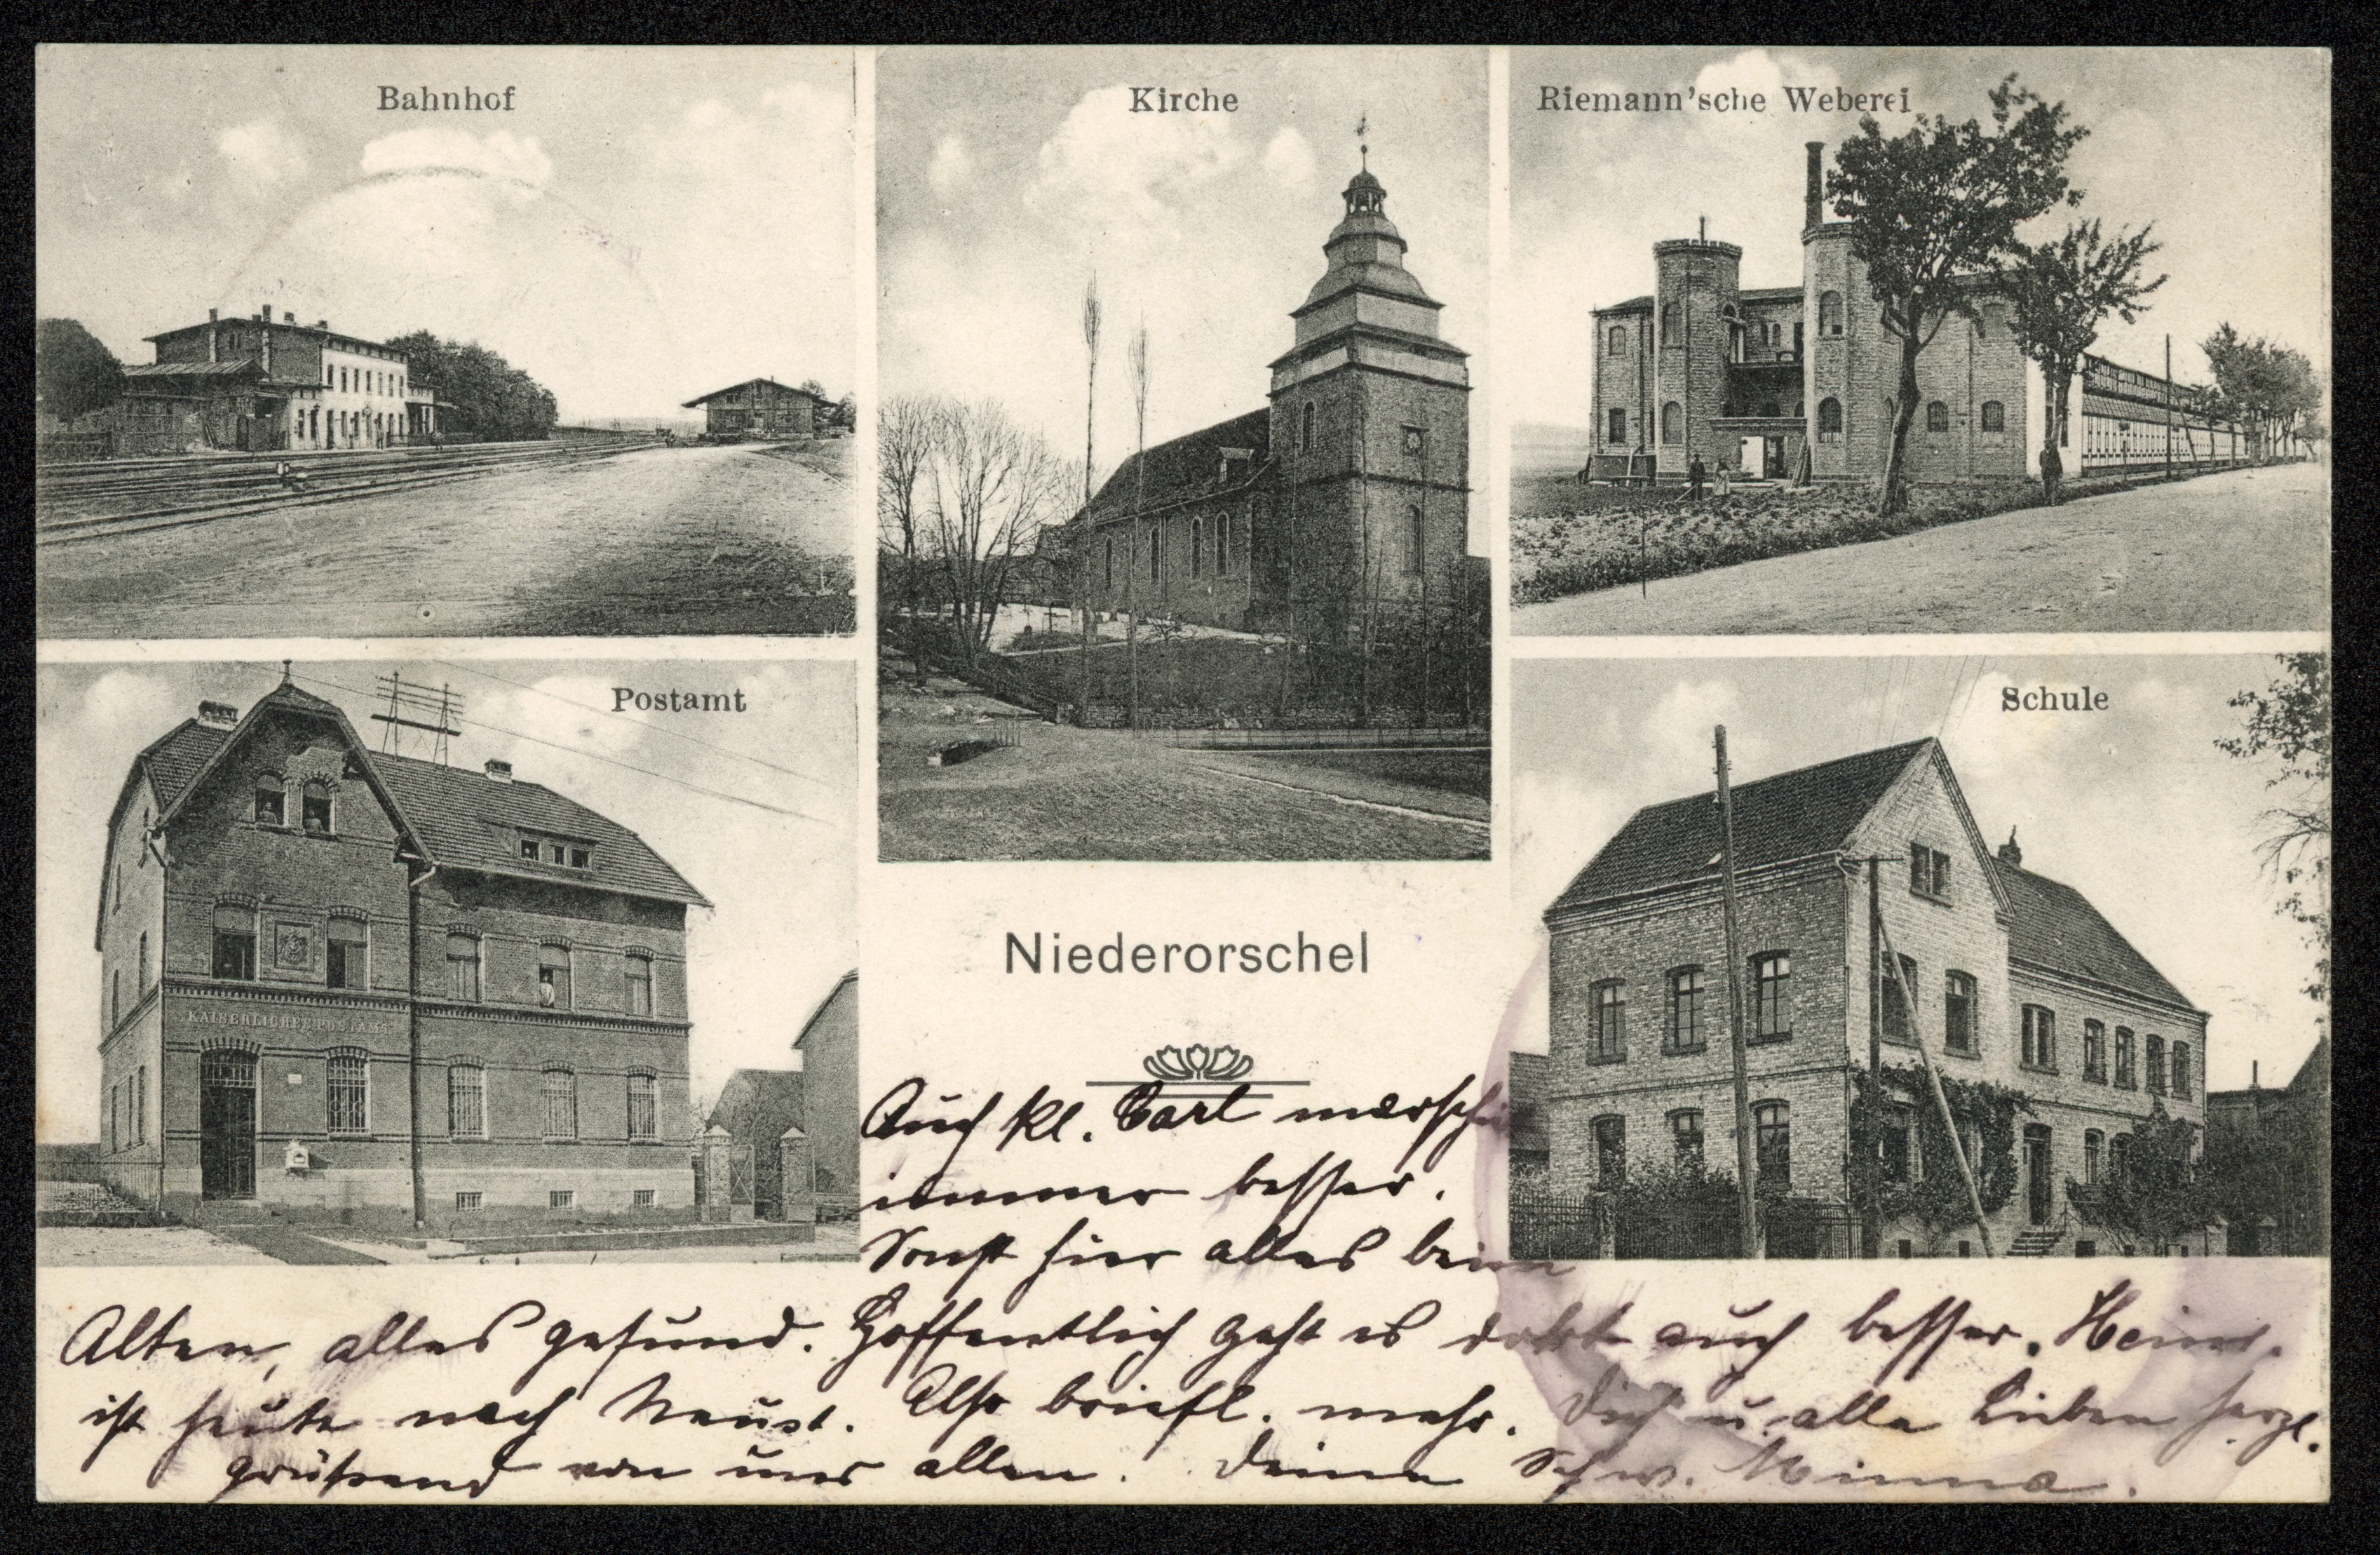 Bahnhof
Kirche
Riemann'sche Weberei
Postamt
Schule
KAISERLICHES POSTAMT
Niederorschel
Auch kl. Carl marschirt
immer besser.
Sonst hier alles beim
Alten, alles gesund. Hoffentlich geht es dort auch besser.
ist heute nach Neust. Also briefl. mehr. Dich u. alle Lieben herzl.
grüßend von uns allen. Deine Schw. Minna.